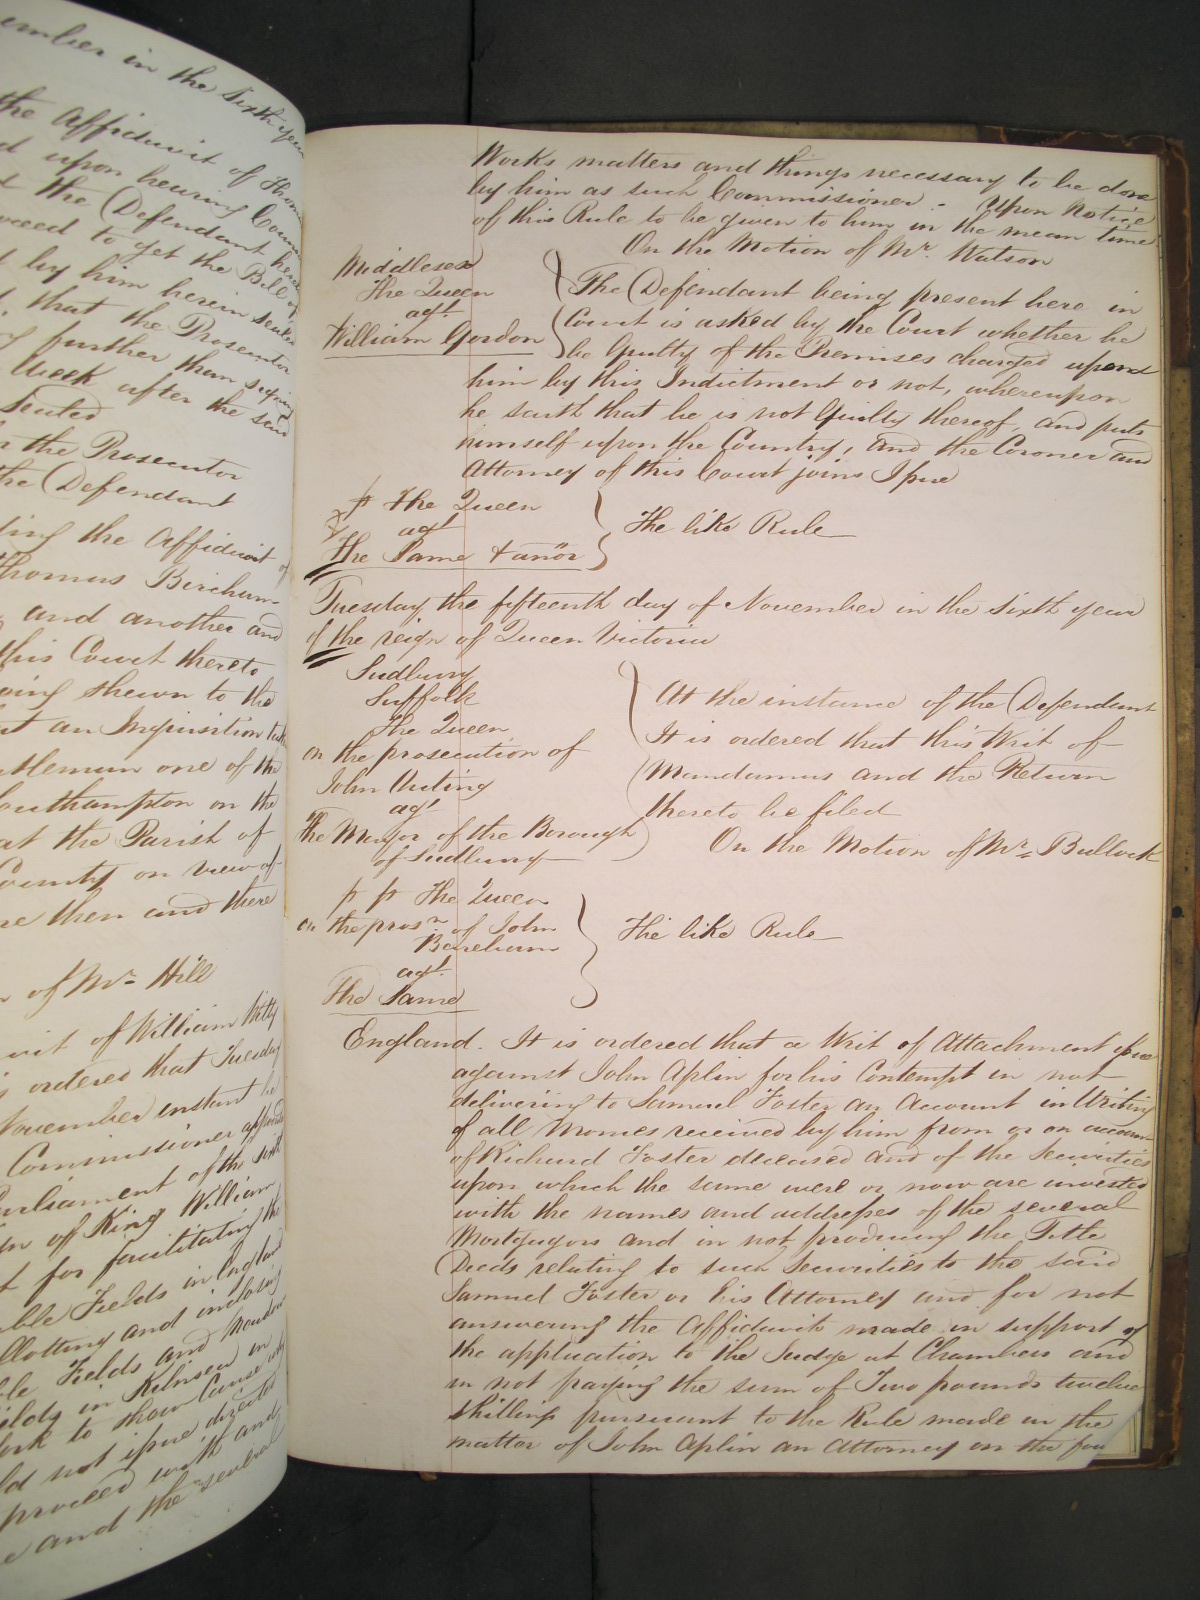 ember in the Sixth year
the Affidavit of Thom
d upon hearing Coun
the Defendant here
oceed to get the Bill of
by him herein sealed
that the Prosecutor
further than
Week after the said
Sealed
the Prosecutor
the Defendant
ding the Affidavit of
Thomas Bircham
and another and
this Court thereto
being shewn to the
an Inquisition
ntleman one of the
Southampton on the
at the Parish of
County on view of
re then and there
of Mr. Hill
vit of William Witty
ordered that Tuesday
November instant be
Commissioner
Parliament of the Sixth
off King William
t for facilitating the
ble Fields in England
llotting and inclosing
Fields and Meadow
in Kilnsea in
York to show Cause why
ld not issue directed
proceed with and
and the several
Works matters and things necessary to be done
by him as such Commissioner. - Upon Notice
of this Rule to be given to him in the mean time
On the Motion of Mr. Watson
Middlesex
The Queen
agt.
William Gordon
The Defendant being present here in
Court is asked by the Court whether he
be Guilty of the Premises charged upon
him by this Indictment or not, whereupon
he saith that he is not Guilty thereof, and puts
himself upon the Country, and the Coroner and
Attorney of this Court joins Issue
The Queen
agt
The Same & anor
The like Rule
Tuesday the fifteenth day of November in the Sixth year
of the reign of Queen Victoria
Sudbury
Suffolk
The Queen
on the prosecution of
John Auting
agt
The Mayor of the Borough
of Sudbury
At the instance of the Defendant
It is ordered that this Writ of
Mandamus and the Return
thereto be filed
On the Motion of Mr. Bullock
The Queen
on the prosn. of John
Bareham
agt.
The Same
The like Rule
England. It is ordered that a Writ of Attachment issue
against John Aplin for his Contempt in not
delivering to Samuel Foster an Account in Writing
of all Monies received by him from or on account
of Richard Foster deceased and of the Securities
upon which the same were or now are invested
with the names and addresses of the several
Mortgagors and in not producing the Title
Deeds relating to such Securities to the said
Samuel Foster or his Attorney and for not
answering the Affidavits made in support of
the application to the Judge at Chambers and
in not paying the sum of Two pounds twelve
shillings pursuant to the Rule made in the
matter of John Aplin an Attorney on the fou